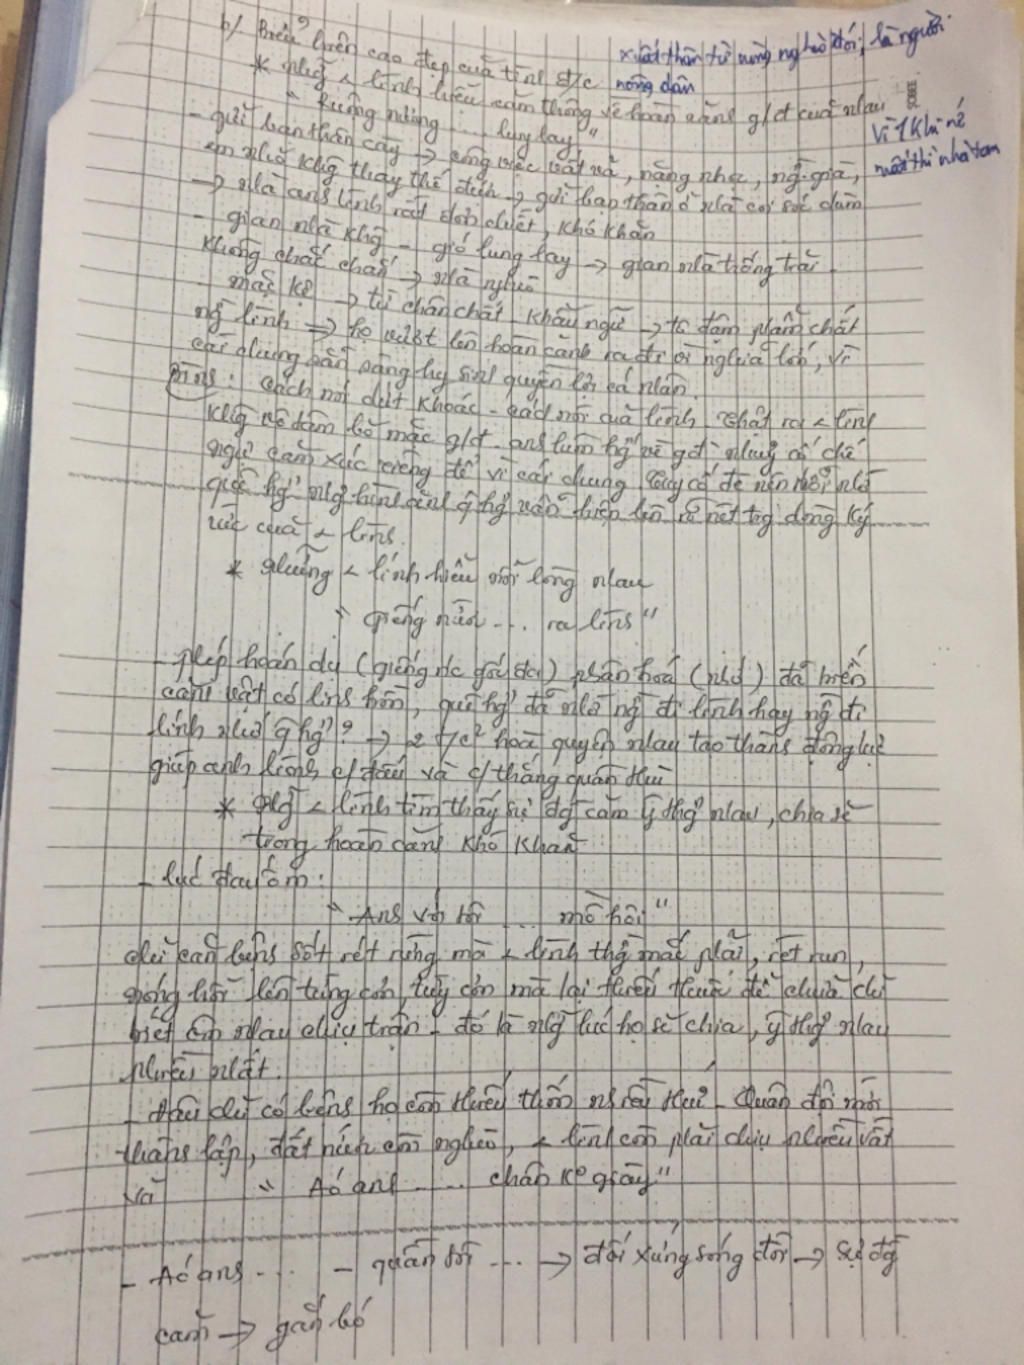 b/ Biểu hiện cao đẹp của tình đ/c
xuất thân từ vùng nghèo đói, là người
nông dân
* những < lính hiểu cảm thông về hoàn cảnh g/đ của nhau
" Ruộng nương ... lung lay"
vì 1 khi
mất thì nhà tan
- gửi bạn thân cày → công việc vất vả, nặng nhọc,
em nhỏ khg thay thế đc → gửi bạn thân ở nhà coi sóc dùm
→ nhà anh lính rất đơn chiếc, khó khăn
- gian nhà khg - gió lung lay → gian nhà trống trải
không chắc chắn → nhà nghèo
- mặc kệ → từ chân chất - khẩu ngữ → tô đậm phẩm chất
ng lính → họ vượt lên hoàn cảnh ra đi vì nghĩa lớn, vì
cái chung sẵn sàng hy sinh quyền lợi cá nhân.
Bình: cách nói dứt khoát - cách nói của lính. Thật ra < lính
khg vô tâm bỏ mặc g/đ. anh luôn hg về gđ nhưng cố chế
ngự cảm xúc riêng để vì cái chung
quê hg' hình ảnh q hg' vẫn hiện lên rõ nét trg dòng ký
ức của < lính.
* Những < lính hiểu nỗi lòng nhau
" Giếng nước .... ra lính"
- phép hoán dụ (giếng nc gốc đa) nhân hoá (nhớ) đã biến
cảnh vật có linh hồn, quê hg' đã nhớ ng đi lính hay ng đi
lính nhớ q hg'? → 2 t/c² hoà quyện nhau tạo thành động lực
giúp anh lính c/đấu và c/thắng quân thù
* Nhg < lính tìm thấy sự đg cảm y thg' nhau, chia sẻ
trong hoàn cảnh khó khăn
- lúc đau ốm:
" Anh với tôi ... mồ hôi"
chỉ căn bệnh sốt rét rừng mà < lính thg mắc phải, rét run,
nóng hổi lên từng cơn, từng cơn mà lại thiếu thuốc để chữa chỉ
biết ôm nhau chịu trận - đó là những lúc họ sẻ chia, y thg' nhau
nhiều nhất.
- đâu chỉ có bệnh họ còn thiếu thốn nhiều thứ - Quân đội mới
thành lập, đất nước còn nghèo, < lính còn phải chịu nhiều vất
vả " Áo anh ..... chân ko giày"
- Áo anh .... - quần tôi ... → đối xứng sóng đôi → sự đg
cảm → gắn bó